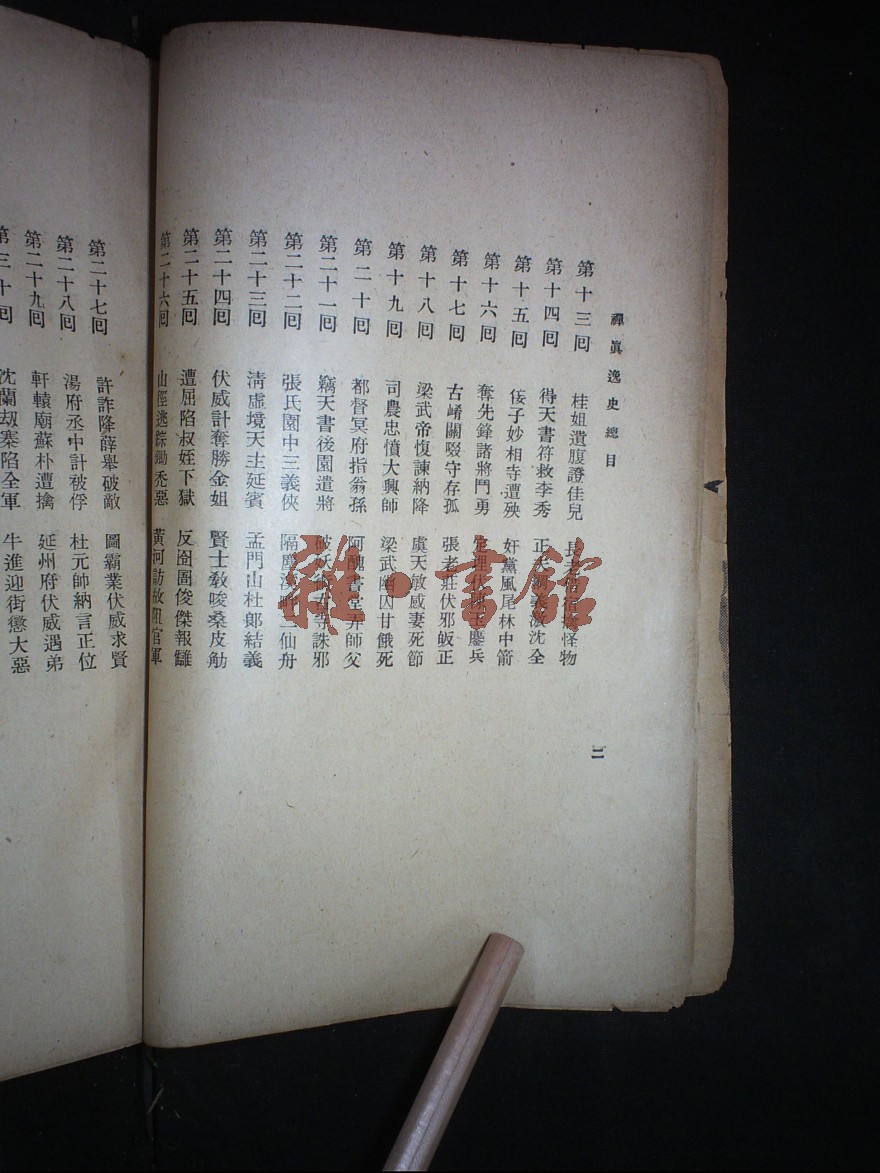 禪眞逸史總目
第十三回 桂姐遺腹證佳兒 長老 怪物
第十四回 得天書符救李秀 正天 激沈全
第十五回 侫子妙相寺遭殃 奸黨風尾林中箭
第十六回 奪先鋒諸將鬥勇 玉鏖兵
第十七回 古崤關啜守存孤 張老莊伏邪皈正
第十八回 梁武帝愎諫納降 虞天敏感妻死節
第十九回 司農忠憤大興師 梁武幽囚甘餓死
第二十回 都督冥府指翁孫 阿醜書堂弄師父
第二十一回 竊天書後園遣將 破妖 寺誅邪
第二十二回 張氏園中三義俠 隔塵溪畔二仙舟
第二十三回 淸虛境天主延賓 孟門山杜郞結義
第二十四回 伏威計奪勝金姐 賢士敎唆桑皮觔
第二十五回 遭屈陷叔姪下獄 反囹圄俊傑報讎
第二十六回 山徑逃踪鋤禿惡 黃河訪故阻官軍
二
第二十七回 許詐降薛舉破敵 圖霸業伏威求賢
第二十八回 湯府丞中計被俘 杜元帥納言正位
第二十九回 軒轅廟蘇朴遭擒 延州府伏威遇弟
第三十回 沈蘭刼寨陷全軍 牛進迎街懲大惡
雜·書館